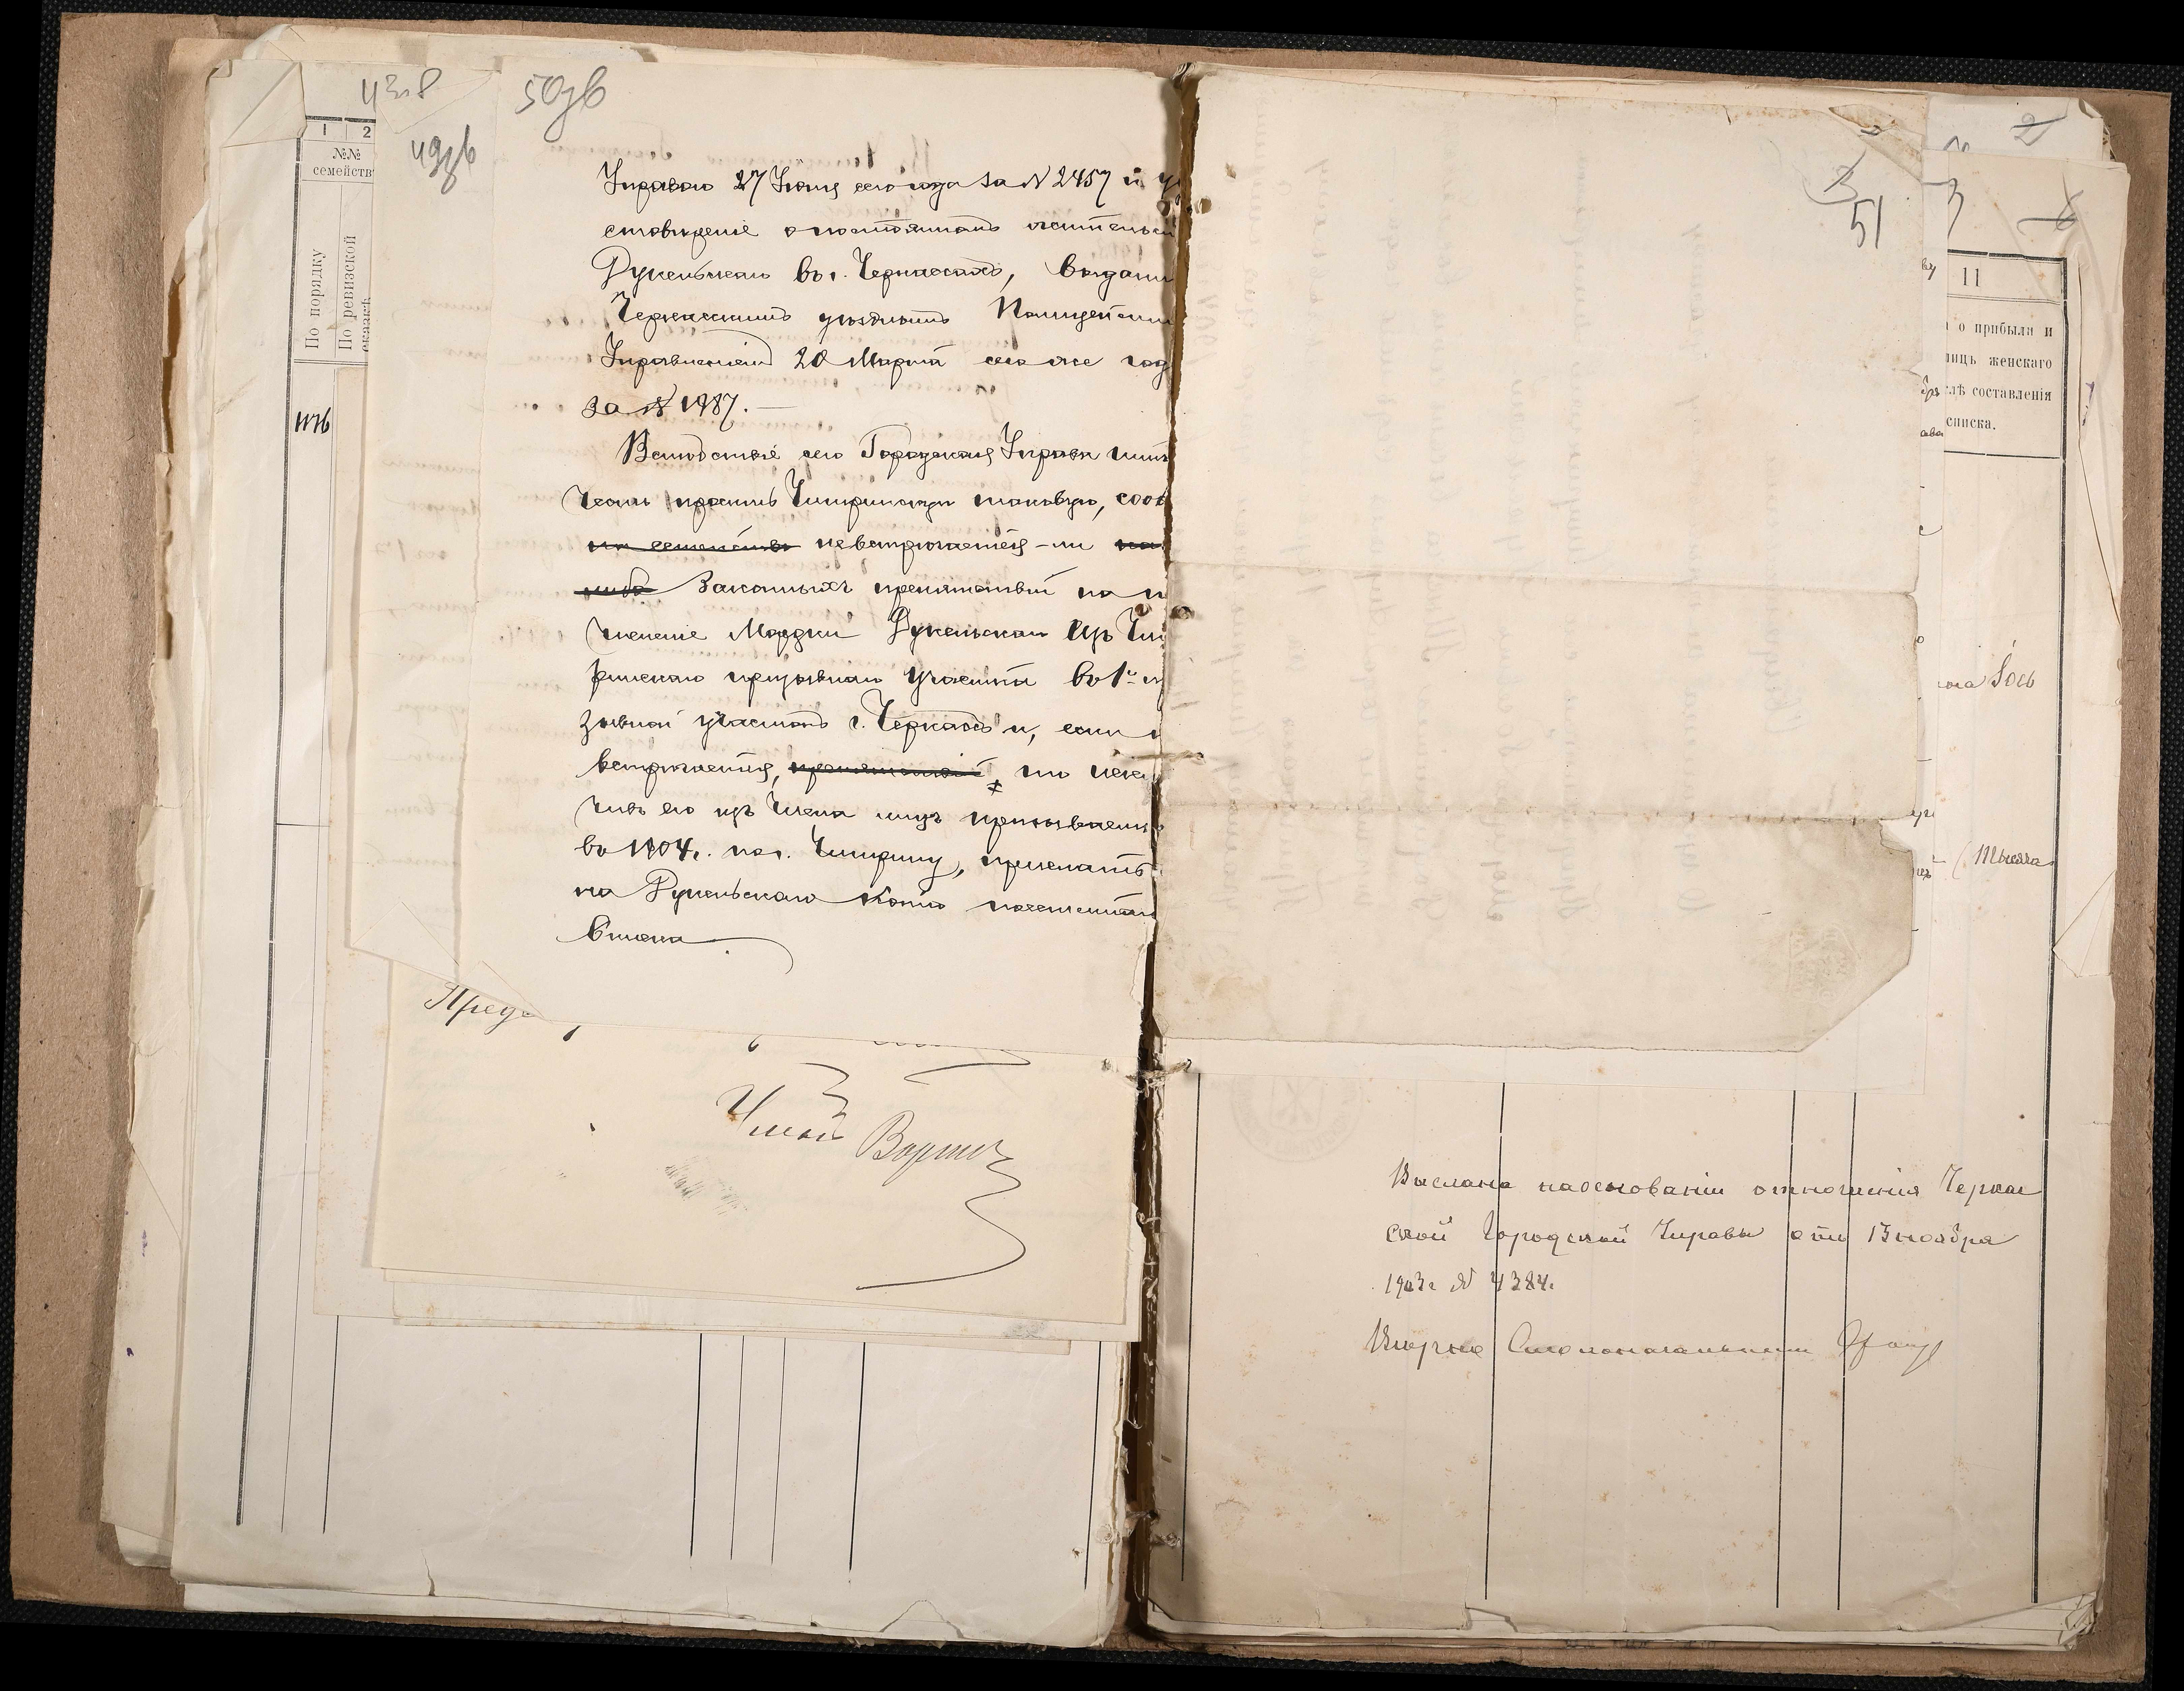 438
1
2
№№
семействъ
По порядку
По ревизской
сказкѣ
49зв
50зв
Управою 27 Іюня сего года за N 2457 и у
стовѣреніе о постоянномъ жительст
Дукельскаго въ г. Черкассахъ, выданн
Черкасскимъ уѣзднымъ Полицейским
Управленіемъ 28 Марта сего же год
за № 1987.
Вслѣдствіе сего Городская Управа имѣ
честь просить Чигиринскую таковую, сооб
по семейству не встрѣчается-ли ка
либо законныхъ препятствій на п
численіе Мордки Дукельскаго изъ Чиг
ринскаго призывнаго участка въ 1й п
зывной участокъ г. Черкассъ и, если н
встрѣчается, препятствій, то исклю
чивъ его изъ числа лицъ призываемы
въ 1904г. по г. Чигирину, прислать
на Дукельскаго копію посемейнаго
списка
Пред
Член
51
2
3
11
о прибыли и
лицъ женскаго
слѣ составленія
списка.
Выслана на основаніи отношенія Черкас
ской Городской Управы отъ 13 ноября
1903г. № 4384.
Вѣрно Столоначальникъ